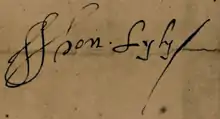 Jhon. Lyly